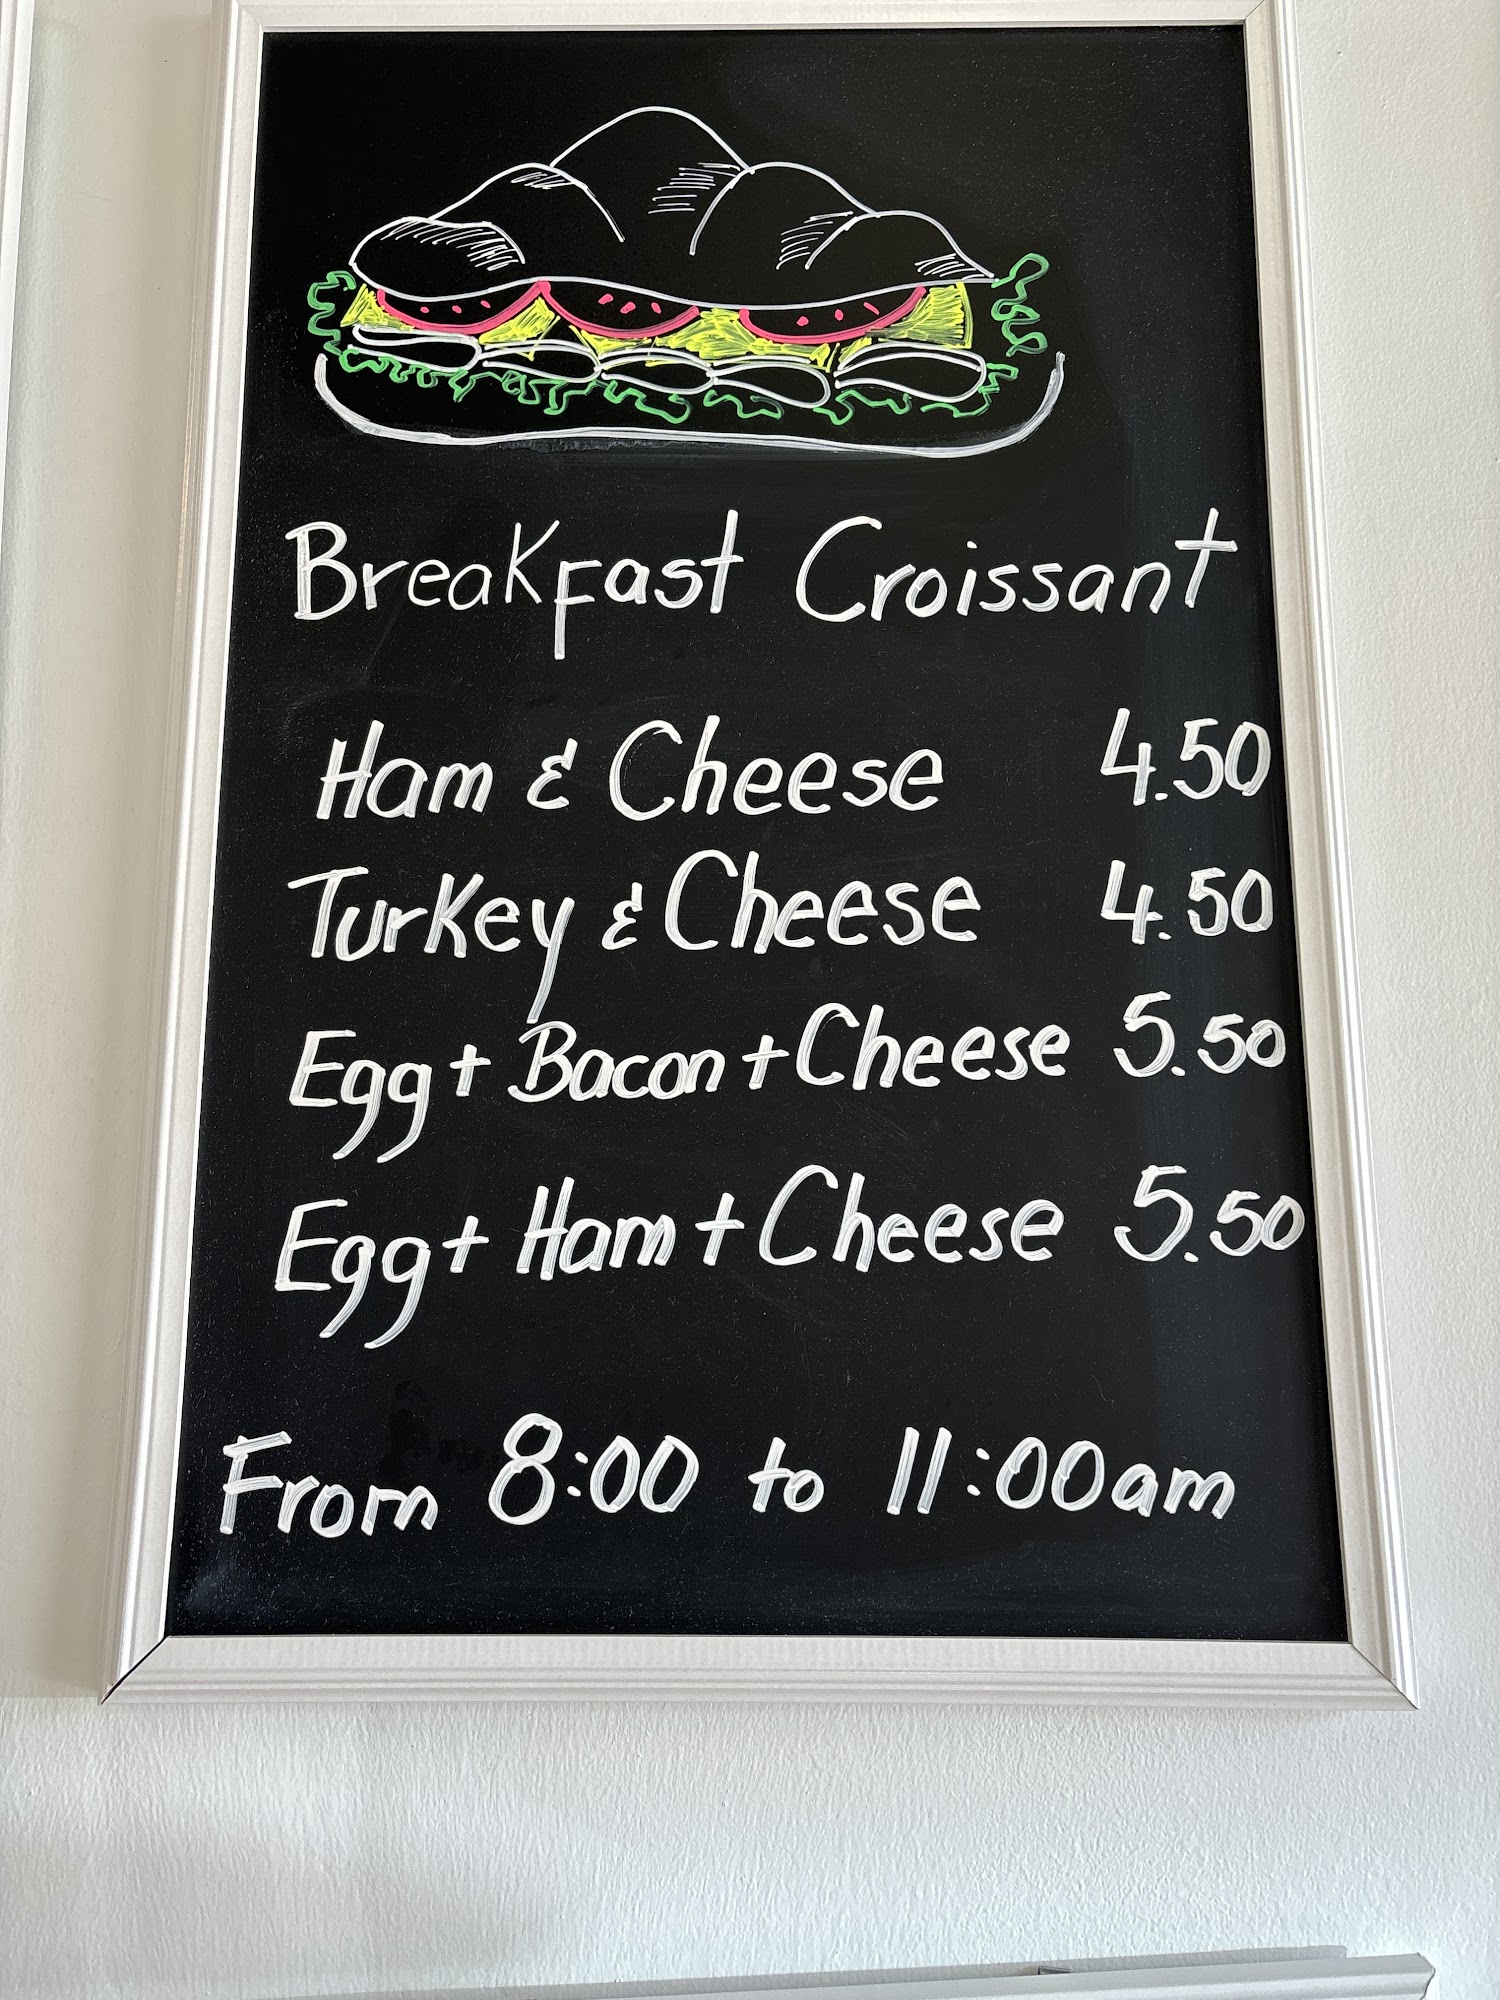 Breakfast Croissant
Ham & Cheese 4.50
Turkey & Cheese 4.50
Egg + Bacon + Cheese 5.50
Egg + Ham + Cheese 5.50
From 8:00 to 11:00am